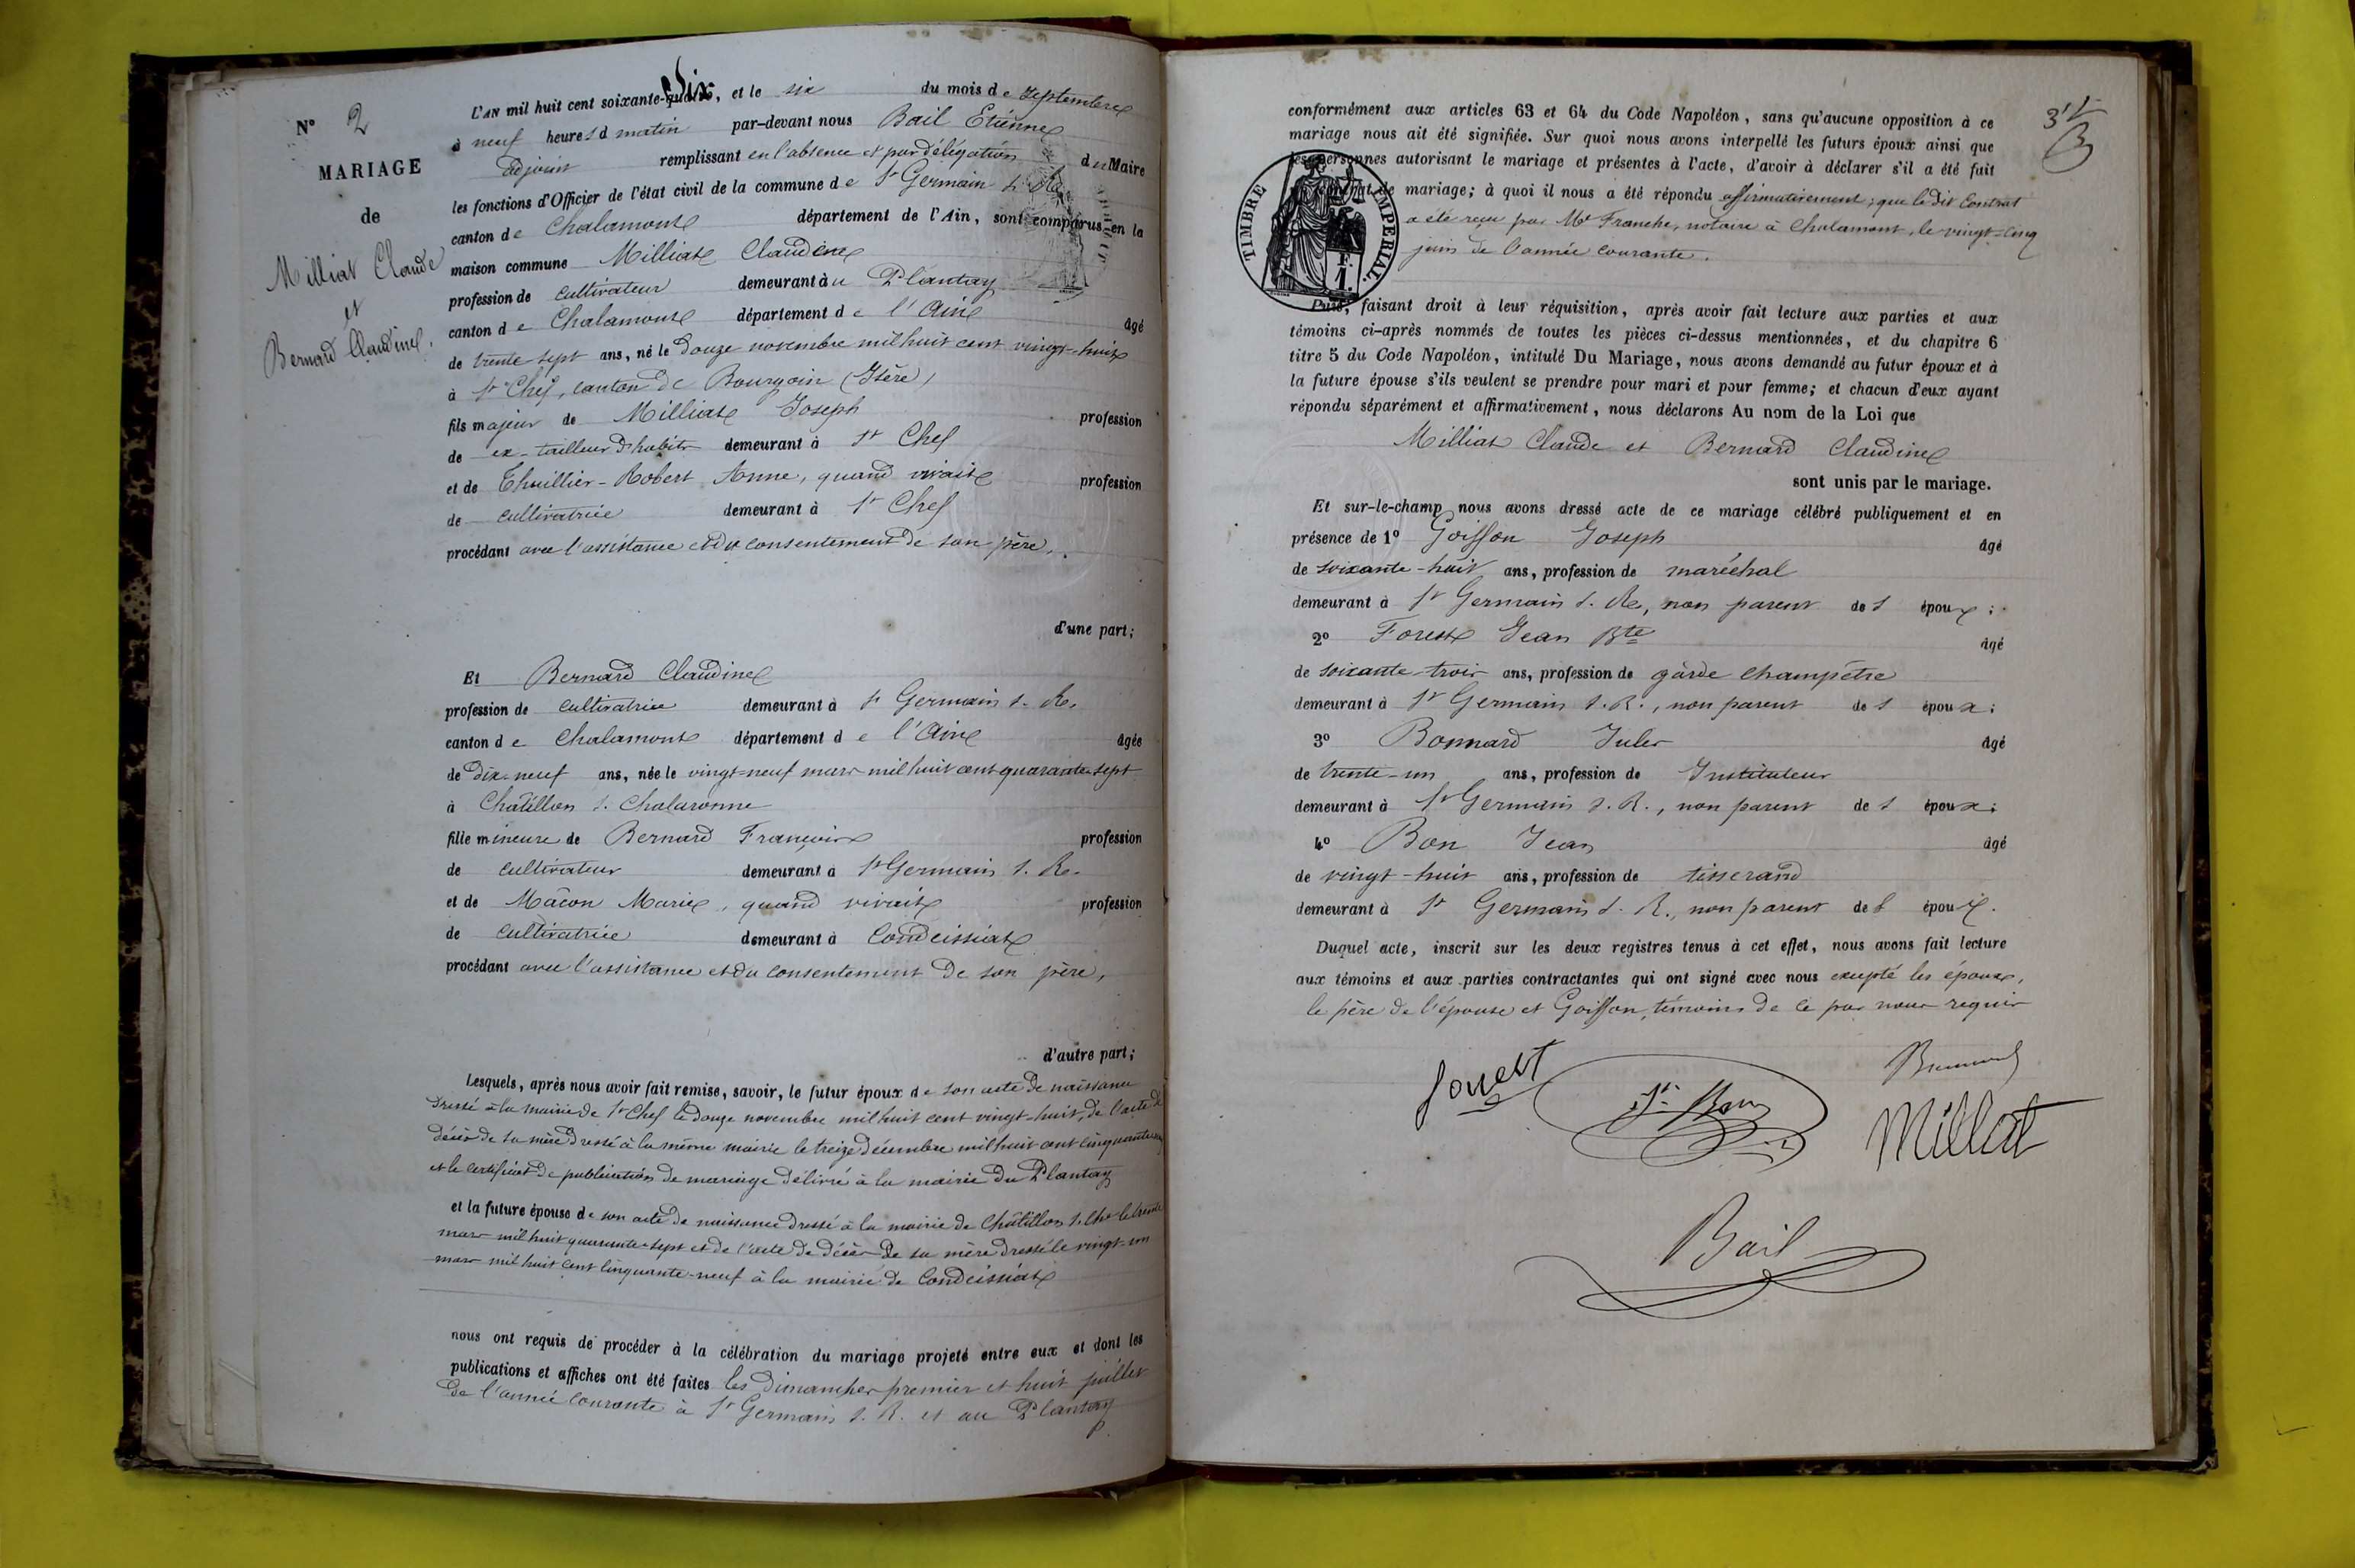 N° 2
MARIAGE
de
Milliat Claude
et
Bernard Claudine.
L'AN mil huit cent soixante-Six, et le six du mois de Septembre
à neuf heures d matin par-devant nous Bail Etienne
adjoint remplissant en l'absence et par délégation du Maire
les fonctions d'Officier de l'état civil de la commune de St Germain s. Re
canton de Chalamont département de l'Ain, sont comparus en la
maison commune Milliat Claudine
profession de cultivateur demeurant à u Plantay
canton de Chalamont département de l'Ain âgé
de trente-sept ans, né le douze novembre mil huit cent vingt-huit
à St Chef, canton de Bourgoin (Isère)
fils majeur de Milliat Joseph profession
de ex-tailleur d'habits demeurant à St Chef
et de Thuillier-Robert Anne, quand vivait profession
de cultivatrice demeurant à St Chef
procédant avec l'assistance et du consentement de son père.
d'une part;
Et Bernard Claudine
profession de cultivatrice demeurant à St Germain s. Re.
canton de Chalamont département de l'Ain âgée
de dix-neuf ans, née le vingt-neuf mars mil huit cent quarante-sept
à Châtillon s. Chalaronne
fille mineure de Bernard François profession
de cultivateur demeurant à St Germain s. Re.
et de Mâcon Marie, quand vivait profession
de cultivatrice demeurant à Condeissiat
procédant avec l'assistance et du consentement de son père,
d'autre part;
Lesquels, après nous avoir fait remise, savoir, le futur époux de son acte de naissance
dressé à la mairie de St Chef le douze novembre mil huit cent vingt-huit, de l'acte de
décès de sa mère dressé à la même mairie le treize décembre mil huit cent cinquante
et le certificat de publication de mariage délivré à la mairie du Plantay
et la future épouse de son acte de naissance dressé à la mairie de Châtillon s. Che le trente
mars mil huit quarante-sept et de l'acte de décès de sa mère dressé le vingt-un
mars mil huit cent cinquante-neuf à la mairie de Condeissiat
nous ont requis de procéder à la célébration du mariage projeté entre eux et dont les
publications et affiches ont été faites les dimanches premier et huit juillet
de l'année courante à St Germain s. R. et au Plantay
conformément aux articles 63 et 64 du Code Napoléon, sans qu'aucune opposition à ce
mariage nous ait été signifiée. Sur quoi nous avons interpellé les futurs époux ainsi que
les personnes autorisant le mariage et présentes à l'acte, d'avoir à déclarer s'il a été fait
contrat de mariage; à quoi il nous a été répondu affirmativement; que le dit Contrat
a été reçu par Me Franche, notaire à Chalamont, le vingt-cinq
juin de l'année courante.
TIMBRE IMPERIAL.
F.
1.
Puis, faisant droit à leur réquisition, après avoir fait lecture aux parties et aux
témoins ci-après nommés de toutes les pièces ci-dessus mentionnées, et du chapitre 6
titre 5 du Code Napoléon, intitulé Du Mariage, nous avons demandé au futur époux et à
la future épouse s'ils veulent se prendre pour mari et pour femme; et chacun d'eux ayant
répondu séparément et affirmativement, nous déclarons Au nom de la Loi que
Milliat Claude et Bernard Claudine
sont unis par le mariage.
Et sur-le-champ nous avons dressé acte de ce mariage célébré publiquement et en
présence de 1° Goiffon Joseph âgé
de soixante-huit ans, profession de maréchal
demeurant à St Germain s. Re, non parent de s époux;
2° Forest Jean Bte âgé
de soixante-trois ans, profession de gârde champêtre
demeurant à St Germain s. R., non parent de s époux;
3° Bonnard Jules âgé
de trente-un ans, profession de Instituteur
demeurant à St Germain s. R., non parent de s époux;
4° Bon Jean âgé
de vingt-huit ans, profession de tisserand
demeurant à St Germain s. R., non parent de s époux.
Duquel acte, inscrit sur les deux registres tenus à cet effet, nous avons fait lecture
aux témoins et aux parties contractantes qui ont signé avec nous excepté les époux,
le père de l'épouse et Goiffon, témoins de ce par nous requis
Forest
Jn Bon
Bonnard
Millat
Bail